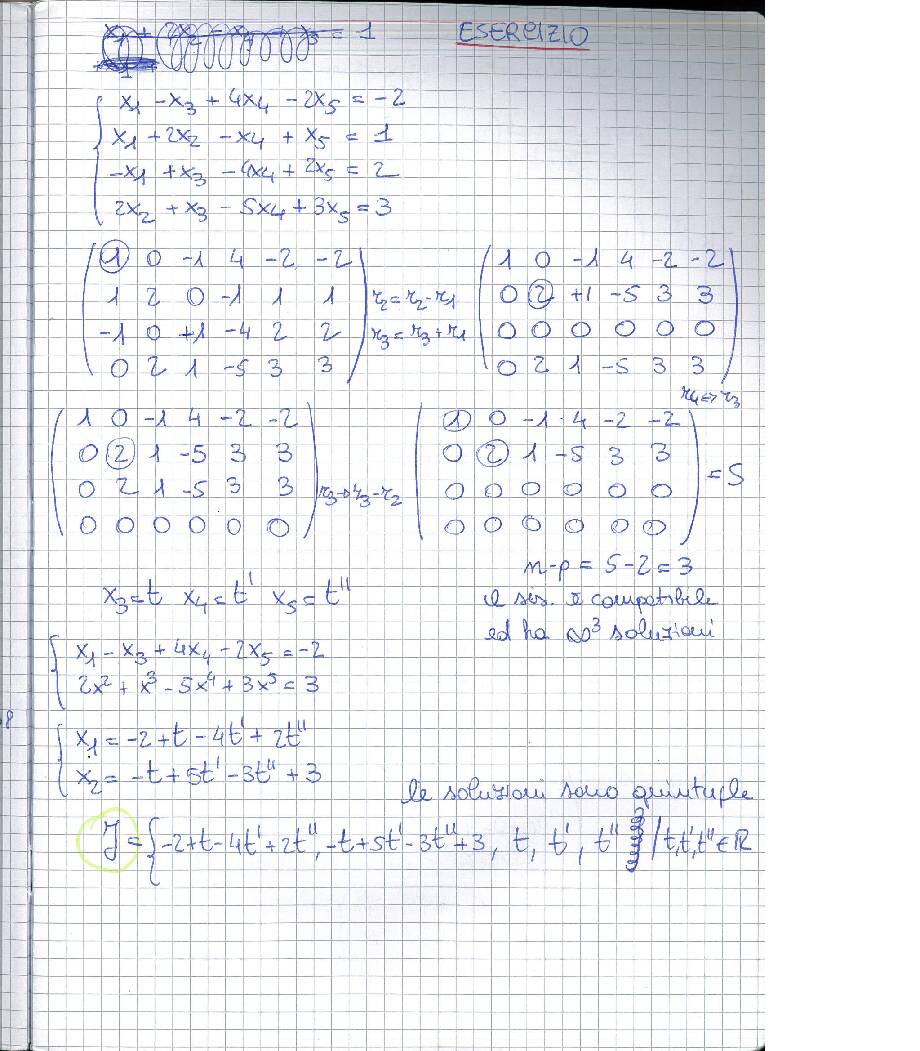 = 1 ESERCIZIO
x₁ - x₃ + 4x₄ - 2x₅ = -2
x₁ + 2x₂ - x₄ + x₅ = 1
-x₁ + x₃ - 4x₄ + 2x₅ = 2
2x₂ + x₃ - 5x₄ + 3x₅ = 3
1 0 -1 4 -2 -2
1 2 0 -1 1 1
-1 0 +1 -4 2 2
0 2 1 -5 3 3
r₂ = r₂ - r₁
r₃ = r₃ + r₁
1 0 -1 4 -2 -2
0 2 +1 -5 3 3
0 0 0 0 0 0
0 2 1 -5 3 3
r₄ ↔ r₃
1 0 -1 4 -2 -2
0 2 1 -5 3 3
0 2 1 -5 3 3
0 0 0 0 0 0
r₃ → r₃ - r₂
1 0 -1 4 -2 -2
0 2 1 -5 3 3
0 0 0 0 0 0
0 0 0 0 0 0
= S
n-p = 5-2 = 3
il sis. è compatibile
ed ha ∞³ soluzioni
x₃ = t x₄ = t' x₅ = t''
x₁ - x₃ + 4x₄ - 2x₅ = -2
2x² + x³ - 5x⁴ + 3x⁵ = 3
x₁ = -2 + t - 4t' + 2t''
x₂ = -t + 5t' - 3t'' + 3
le soluzioni sono quintuple
= { -2+t-4t'+2t'', -t+5t'-3t''+3, t, t', t'' / t,t',t'' ∈ ℝ